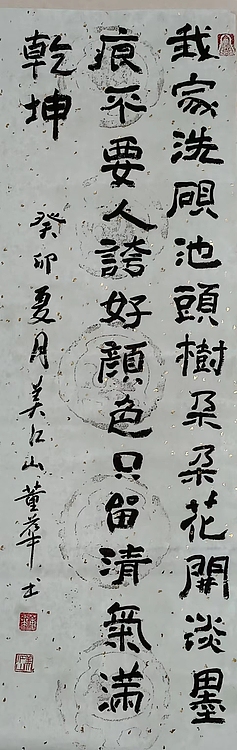 我家洗硯池頭樹朵朵花開淡墨
痕不要人誇好顏色只留清氣滿
乾坤
癸卯夏月美江山董華书